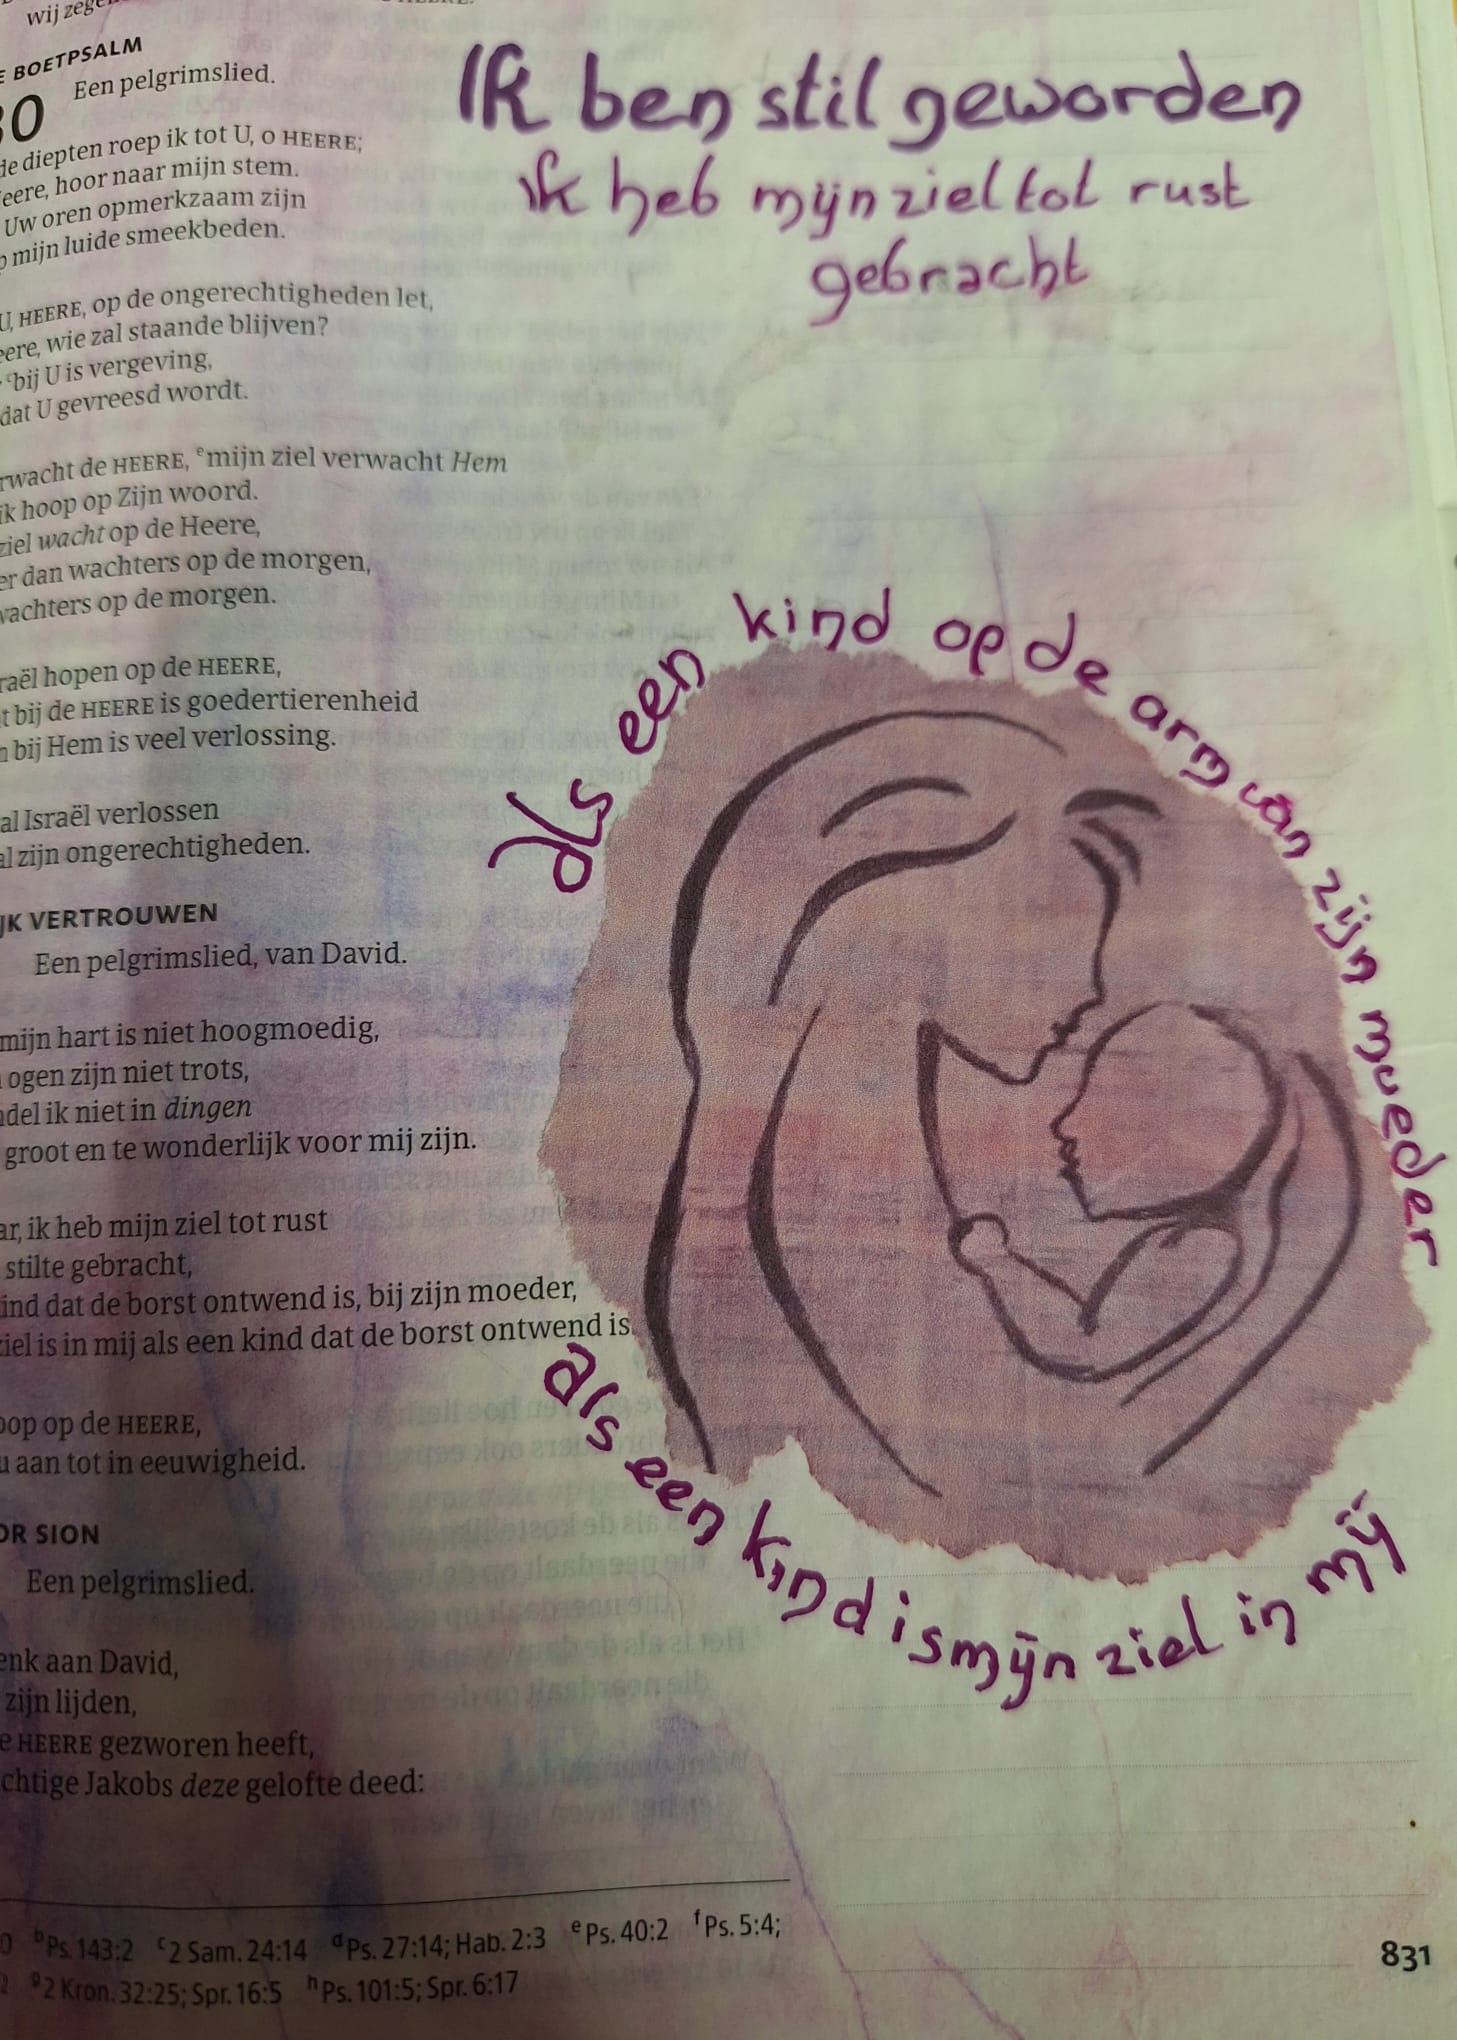 wij
BOETPSALM
Een pelgrimslied.
diepten roep ik tot U, o HEERE;
hoor naar mijn stem.
Uw oren opmerkzaam zijn
mijn luide smeekbeden.
U, HEERE, op de ongerechtigheden let,
wie zal staande blijven?
c bij U is vergeving,
dat U gevreesd wordt.
de HEERE, e mijn ziel verwacht Hem
ik hoop op Zijn woord.
ziel wacht op de Heere,
dan wachters op de morgen,
wachters op de morgen.
hopen op de HEERE,
bij de HEERE is goedertierenheid
bij Hem is veel verlossing.
Israël verlossen
zijn ongerechtigheden.
VERTROUWEN
Een pelgrimslied, van David.
mijn hart is niet hoogmoedig,
ogen zijn niet trots,
ik niet in dingen
groot en te wonderlijk voor mij zijn.
ik heb mijn ziel tot rust
stilte gebracht,
dat de borst ontwend is, bij zijn moeder,
ziel is in mij als een kind dat de borst ontwend is.
op de HEERE,
aan tot in eeuwigheid.
SION
Een pelgrimslied.
aan David,
zijn lijden,
HEERE gezworen heeft,
Jakobs deze gelofte deed:
b Ps. 143:2 c 2 Sam. 24:14 d Ps. 27:14; Hab. 2:3 e Ps. 40:2 f Ps. 5:4;
g 2 Kron. 32:25; Spr. 16:5 h Ps. 101:5; Spr. 6:17
Ik ben stil geworden
ik heb mijn ziel tot rust
gebracht
Als een kind op de arm van zijn moeder
als een kind is mijn ziel in mij
831